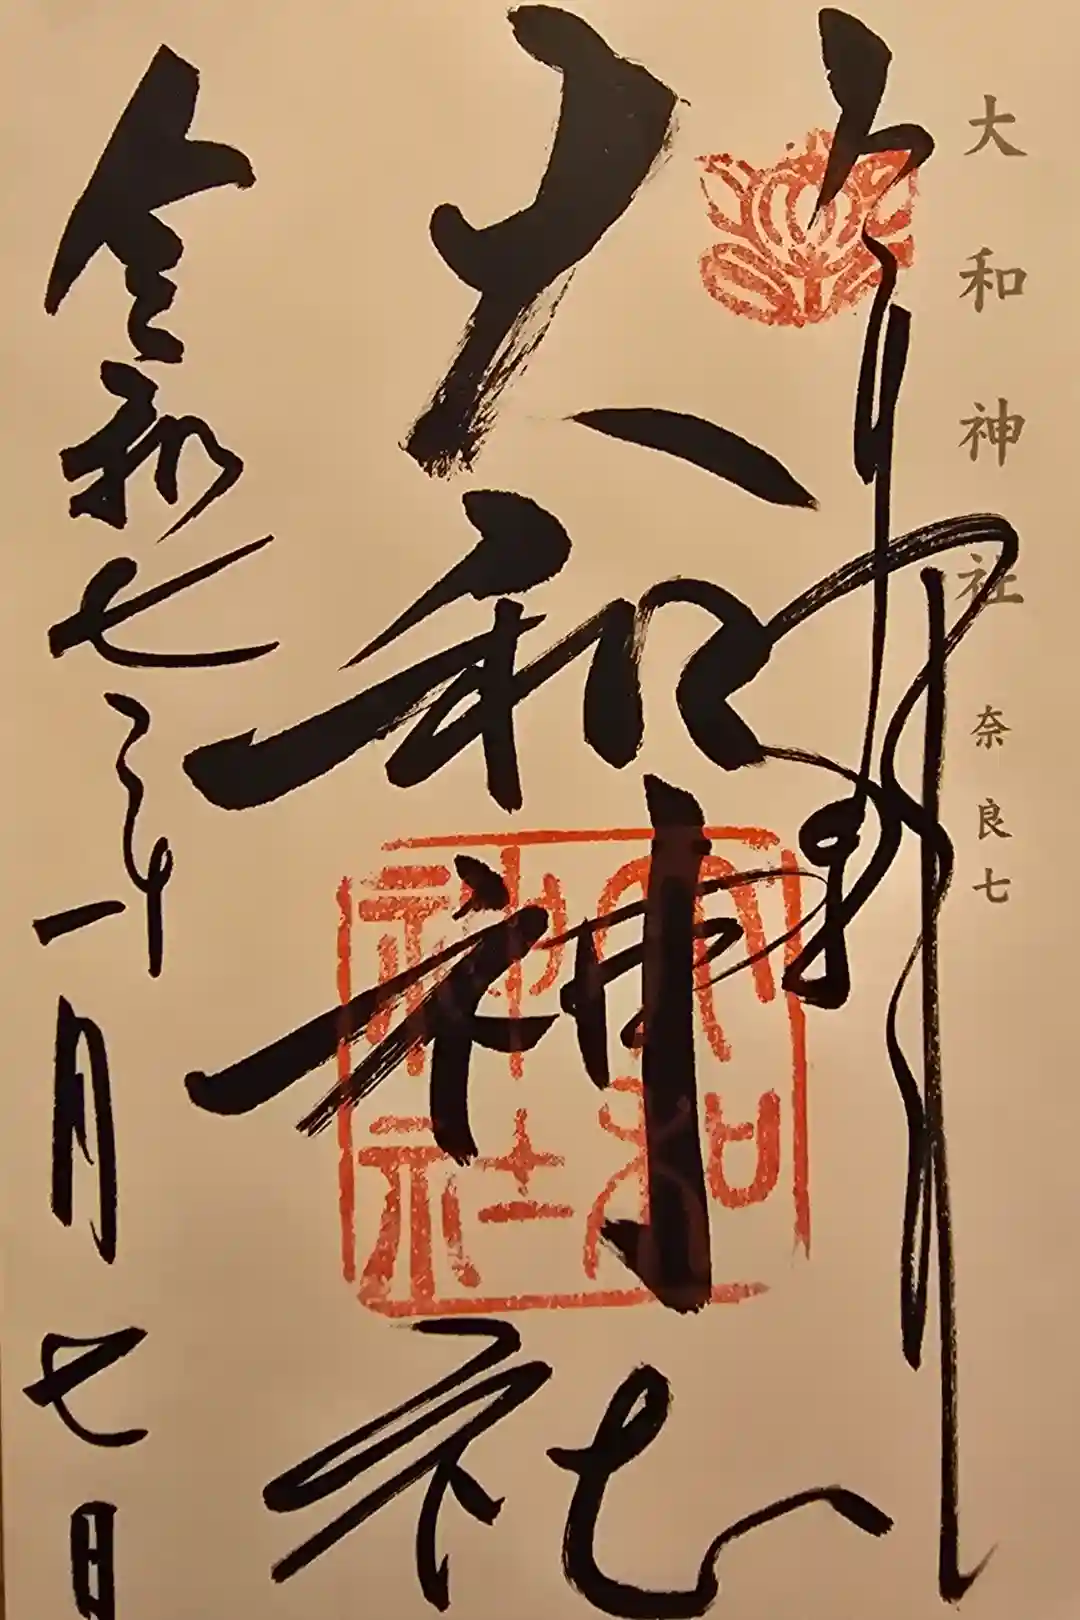 大和神社 奈良七
大和神社
大和
神社
令和七年一月七日